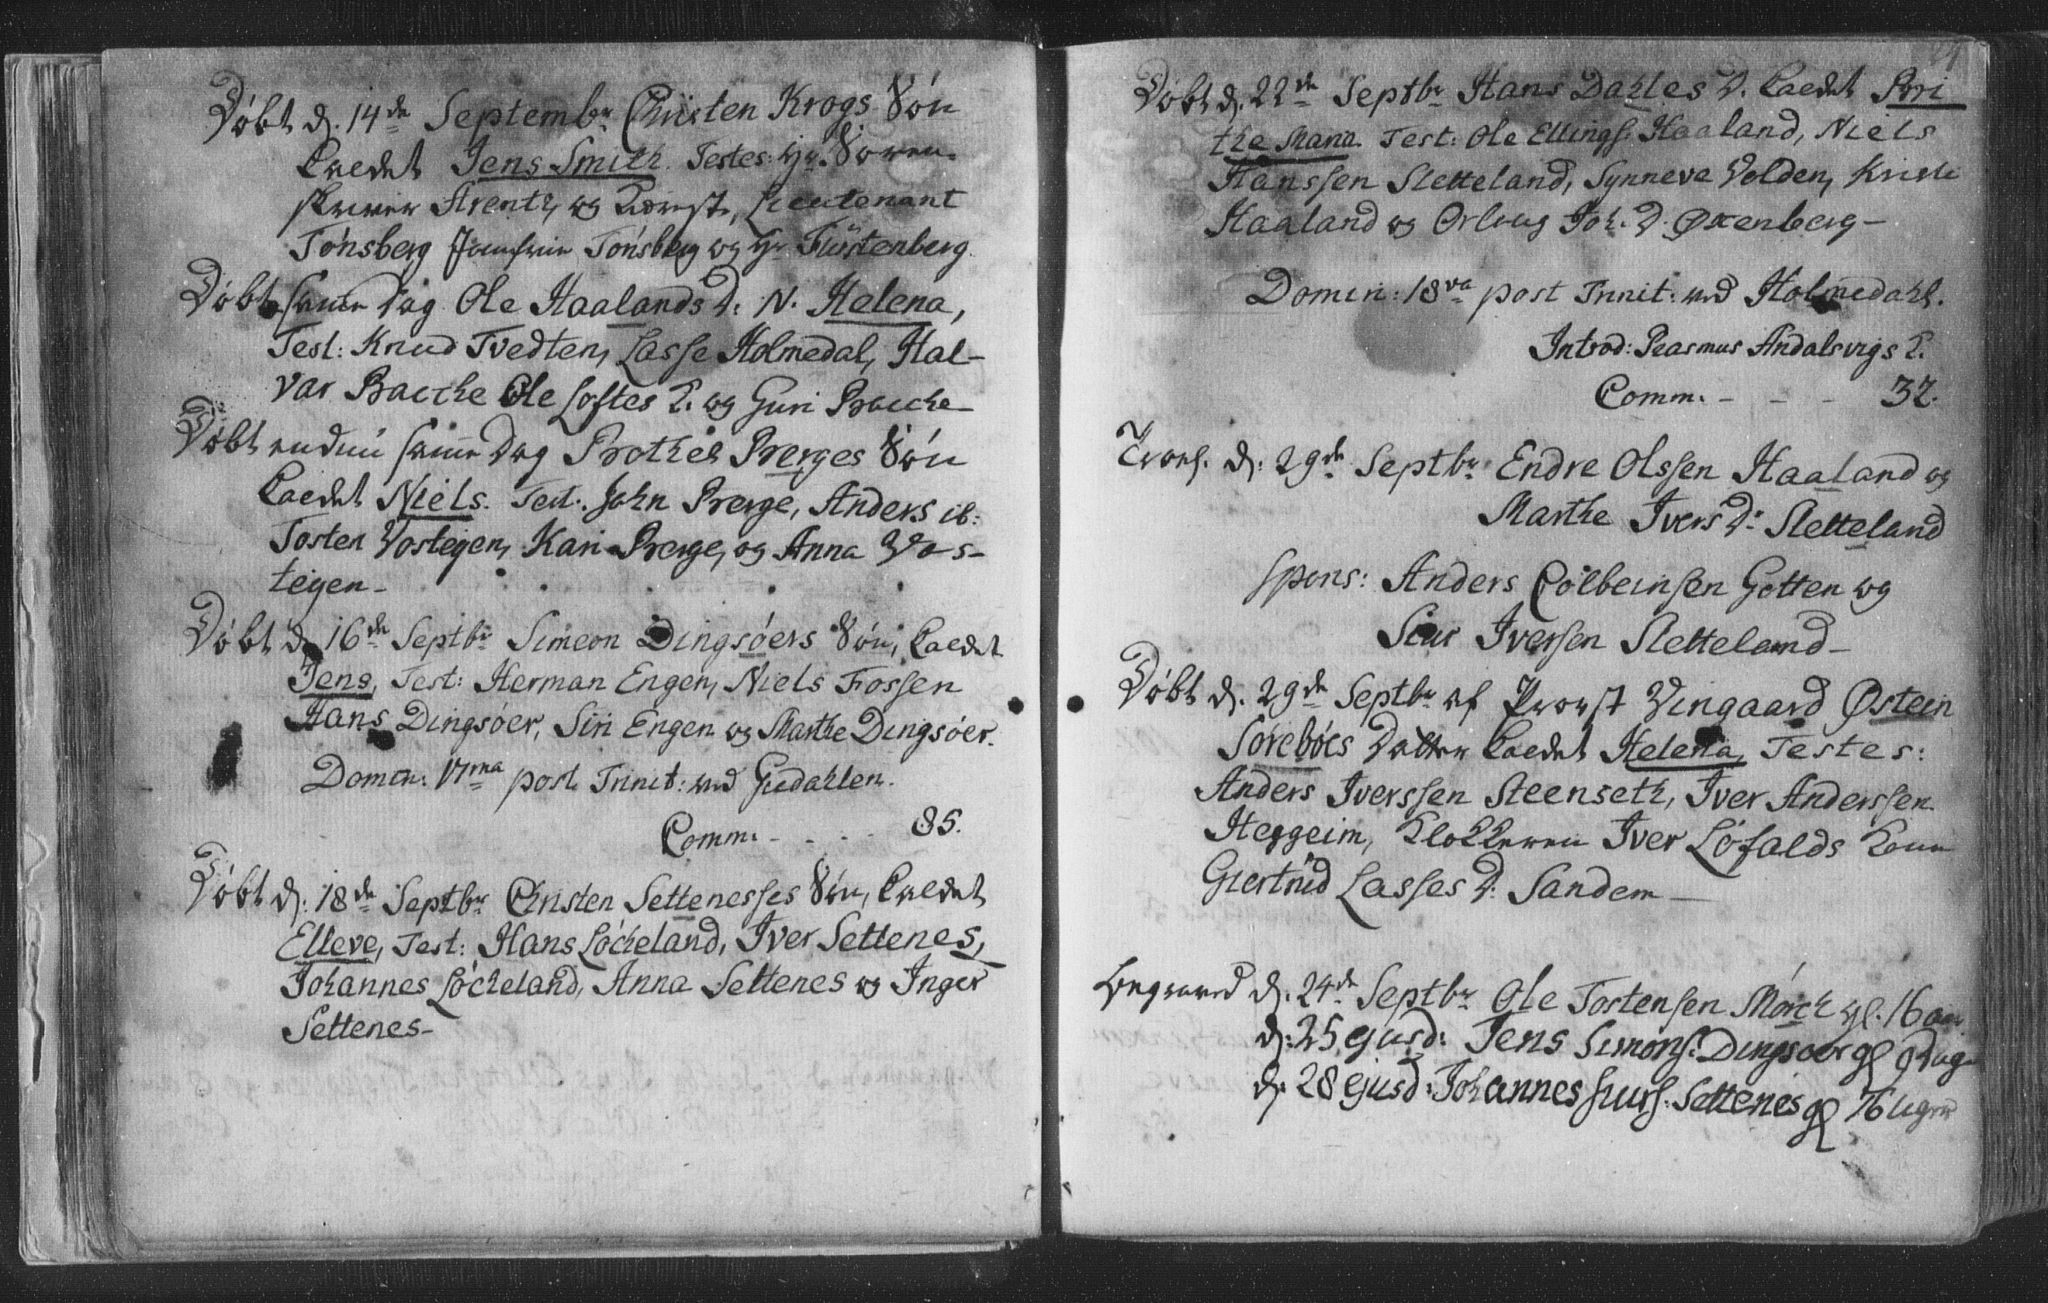 Døbt d. 14de Septembr Christen Krogs Søn
kaldet Jens Smith. Testes: Hr. Soren-
skriver Arentz og Kiærest, Lieutenant
Tønsberg Jomfrue Tønsberg og Hr Fürstenberg.
Døbt samme dag Ole Haalands D: N. Helena,
Test: Knud Tvedten, Lasse Holmedal, Hal-
var Bache Ole Loftes K. og Guri Bache-
Døbt endnu samme dag Bothel Berges Søn
kaldet Niels. Test: John Berge, Anders ib:
Tosten Vosteigen, Kari Berge, og Anna Vos-
teigen-
Døbt d. 16de Septbr Simeon Dingsøers Søn, kaldet
Jens, Test: Herman Engen, Niels Fossen
Hans Dingsøer, Siri Engen og Marthe Dingsøer.
Domin: 17ma post Trinit: ved Gudahlen.
Comm: - - - 85.
Døbt d: 18de Septbr Christen Settenesses Søn, kaldet
Elleve, Test: Hans Løcheland, Iver Settenes,
Johannes Løcheland, Anna Settenes og Inger
Settenes-
Døbt d. 22de Septbr Hans Dahles D. kaldet Bri
the Maria. Test: Ole Ellings: Haaland, Niels
Hanssen Sletteland, Synneve Volden, Kristi
Haaland og Orloug Joh. D. Oxenberg-
Domin: 18va post Trinit: ved Holmedahl.
Introd: Rasmus Andalsvigs K.
Comm. - - - 32.
Trol. d: 29de Septbr Endre Olssen Haaland og
Marthe Ivers D: Sletteland
spons: Anders Colbeinsen Gotten og
Siur Iversen Sletteland-
Døbt d. 29de Septbr af Provst Vingaard Østein
Sørebøes Datter kaldet Helena, Testes:
Anders Iverssen Steenseth, Iver Anderssen
Heggeim, Klokkeren Iver Løfalds Kone
Giertrud Lasses D: Sandem-
Begraved d. 24de Septbr Ole Tostensen Mørch gl. 16 aar
d: 25 ejusd: Jens Simons: Dingsøer gl 9 Dage
d. 28 ejusd: Johannes Siurs: Settenes gl 76 Uger